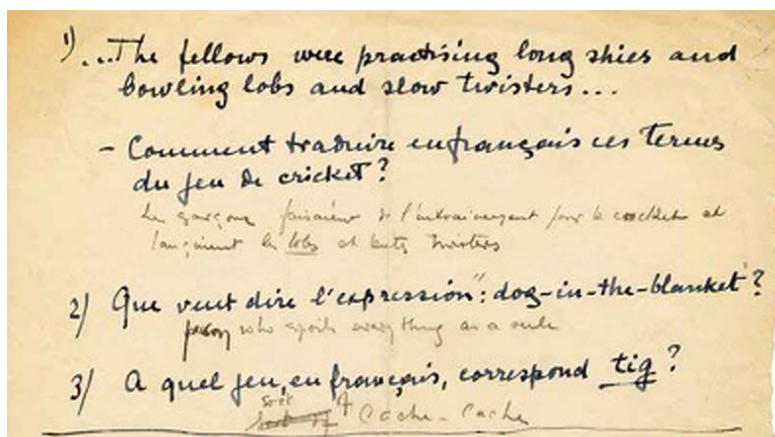 1) ...The fellows were practising long shies and
bowling lobs and slow twisters...
- Comment traduire en français ces termes
du jeu de cricket?
garçons faisaient de l'entrainement pour le cricket et
lançaient les lobs et twisters
2) Que veut dire l'expression": dog-in-the-blanket"?
person who spoils everything as a rule
3) A quel jeu, en français, correspond tig?
sort of Cache-Cache